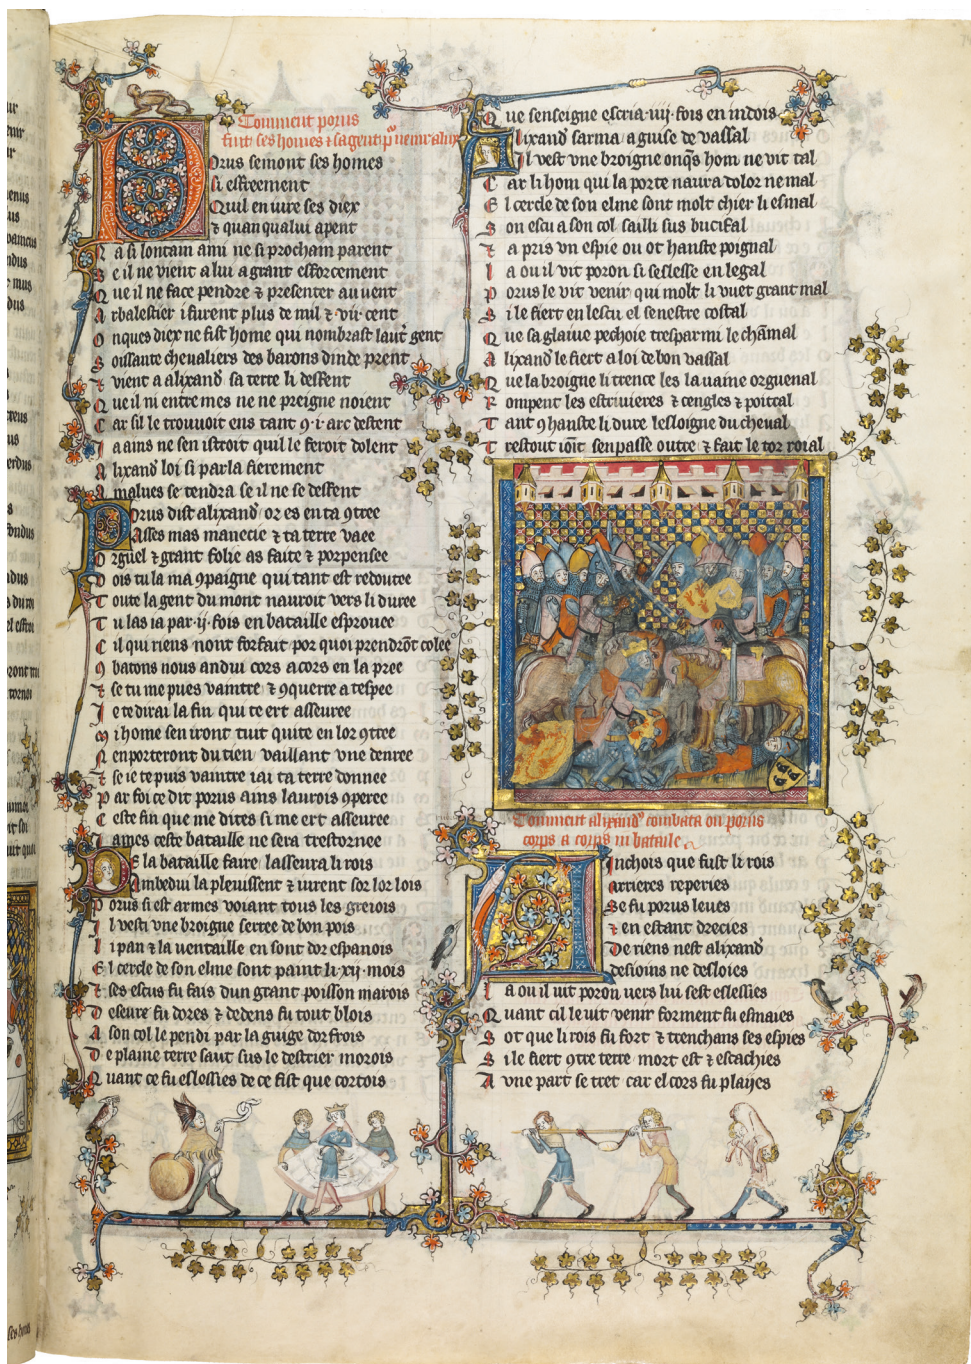 Comment porus
fait ses homes & sa gent p̄ venir alix
Porus semont ses homes
si esfreement
Quil en iure ses diex
& quanqualui apent
Ja si lontain ami ne si procham parent
Se il ne vient a lui a grant esforcement
Que il ne face pendre & presenter au vent
Arbalestier i furent plus de mil & vii cent
Onques diex ne fist home qui nombrast laut̉ gent
Soissante cheualiers des barons dinde prent
& vient a alixand̉ sa terre li deffent
Que il ni entre mes ne ne preigne noient
Car sil le trouuoit ens tant 9 .i. arc destent
Ja ains ne sen istroit quil le feroit dolent
Alixand̉ loi si parla fierement
A malues se tendra se il ne se deffent
Porus dist alixand̉ or es en ta 9tree
Asses mas manecie & ta terre vaee
Orguel & grant folie as faite & porpensee
Dois tu la ma 9paigne qui tant est redoutee
Toute la gent du mont nauroit vers li duree
Tu las ia par .ij. fois en bataille esprouee
Cil qui riens nont forfait por quoi prendrōt colee
9batons nous andui cors a cors en la pree
& se tu me pues vaintre & 9querre a tespee
Je te dirai la fin qui te ert asseuree
Mi home sen iront tuit quite en lor 9tree
Nenporteront du tien vaillant vne denree
& se ie te puis vaintre iai ta terre donnee
Par foi ce dit porus ains laurois 9peree
Ceste fin que me dites si me ert asseuree
James ceste bataille ne sera trestornee
De la bataille faire lasseura li rois
Ambedui la pleuissent & iurent sor lor lois
Porus si est armes voiant tous les greiois
Il vesti vne broigne serree de bon pois
Li pan & la ventaille en sont dor espanois
El cercle de son elme sont paint li .xij. mois
& ses escus fu fais dun grant poisson marois
Deseure fu dores & dedens fu tout blois
A son col le pendi par la guige dorfrois
De plaine terre saut sus le destrier morois
Quant ce fu eslossies de ce fist que cortois
Que senseigne escria .iiij. fois en indois
Alixand̉ sarma a guise de vassal
Il vest vne broigne onq̄s hom ne vit tal
Car li hom qui la porte naura dolor ne mal
El cercle de son elme sont molt chier li esmal
Son escu a son col sailli sus bucifal
& a pris vn espie ou ot hanste poignal
La ou il vit poron si seslesse en legal
Porus le vit venir qui molt li vuet grant mal
Si le fiert en lescu el senestre costal
Que sa glaiue pechoie tresparmi le chāmal
Alixand̉ le fiert a loi de bon vassal
Que la broigne li trence les la vaine orguenal
Rompent les estriuieres & cengles & poitral
Tant 9 hanste li dure lesloigne du cheual
Trestout iōit sen passe outre & fait le tor roial
Comment alixand̉ combata on porus
corps a corps in bataile
Ainchois que fust li rois
arrieres reperies
Se fu porus leues
& en estant drecies
De riens nest alixand̉
desioins ne desloies
La ou il uit poron uers lui sest eslessies
Quant cil le uit venir forment fu esmaies
Sot que li rois fu fort & trenchans ses espies
Si le fiert 9tre terre mort est & estachies
A vne part se tret car el cors fu plaijes